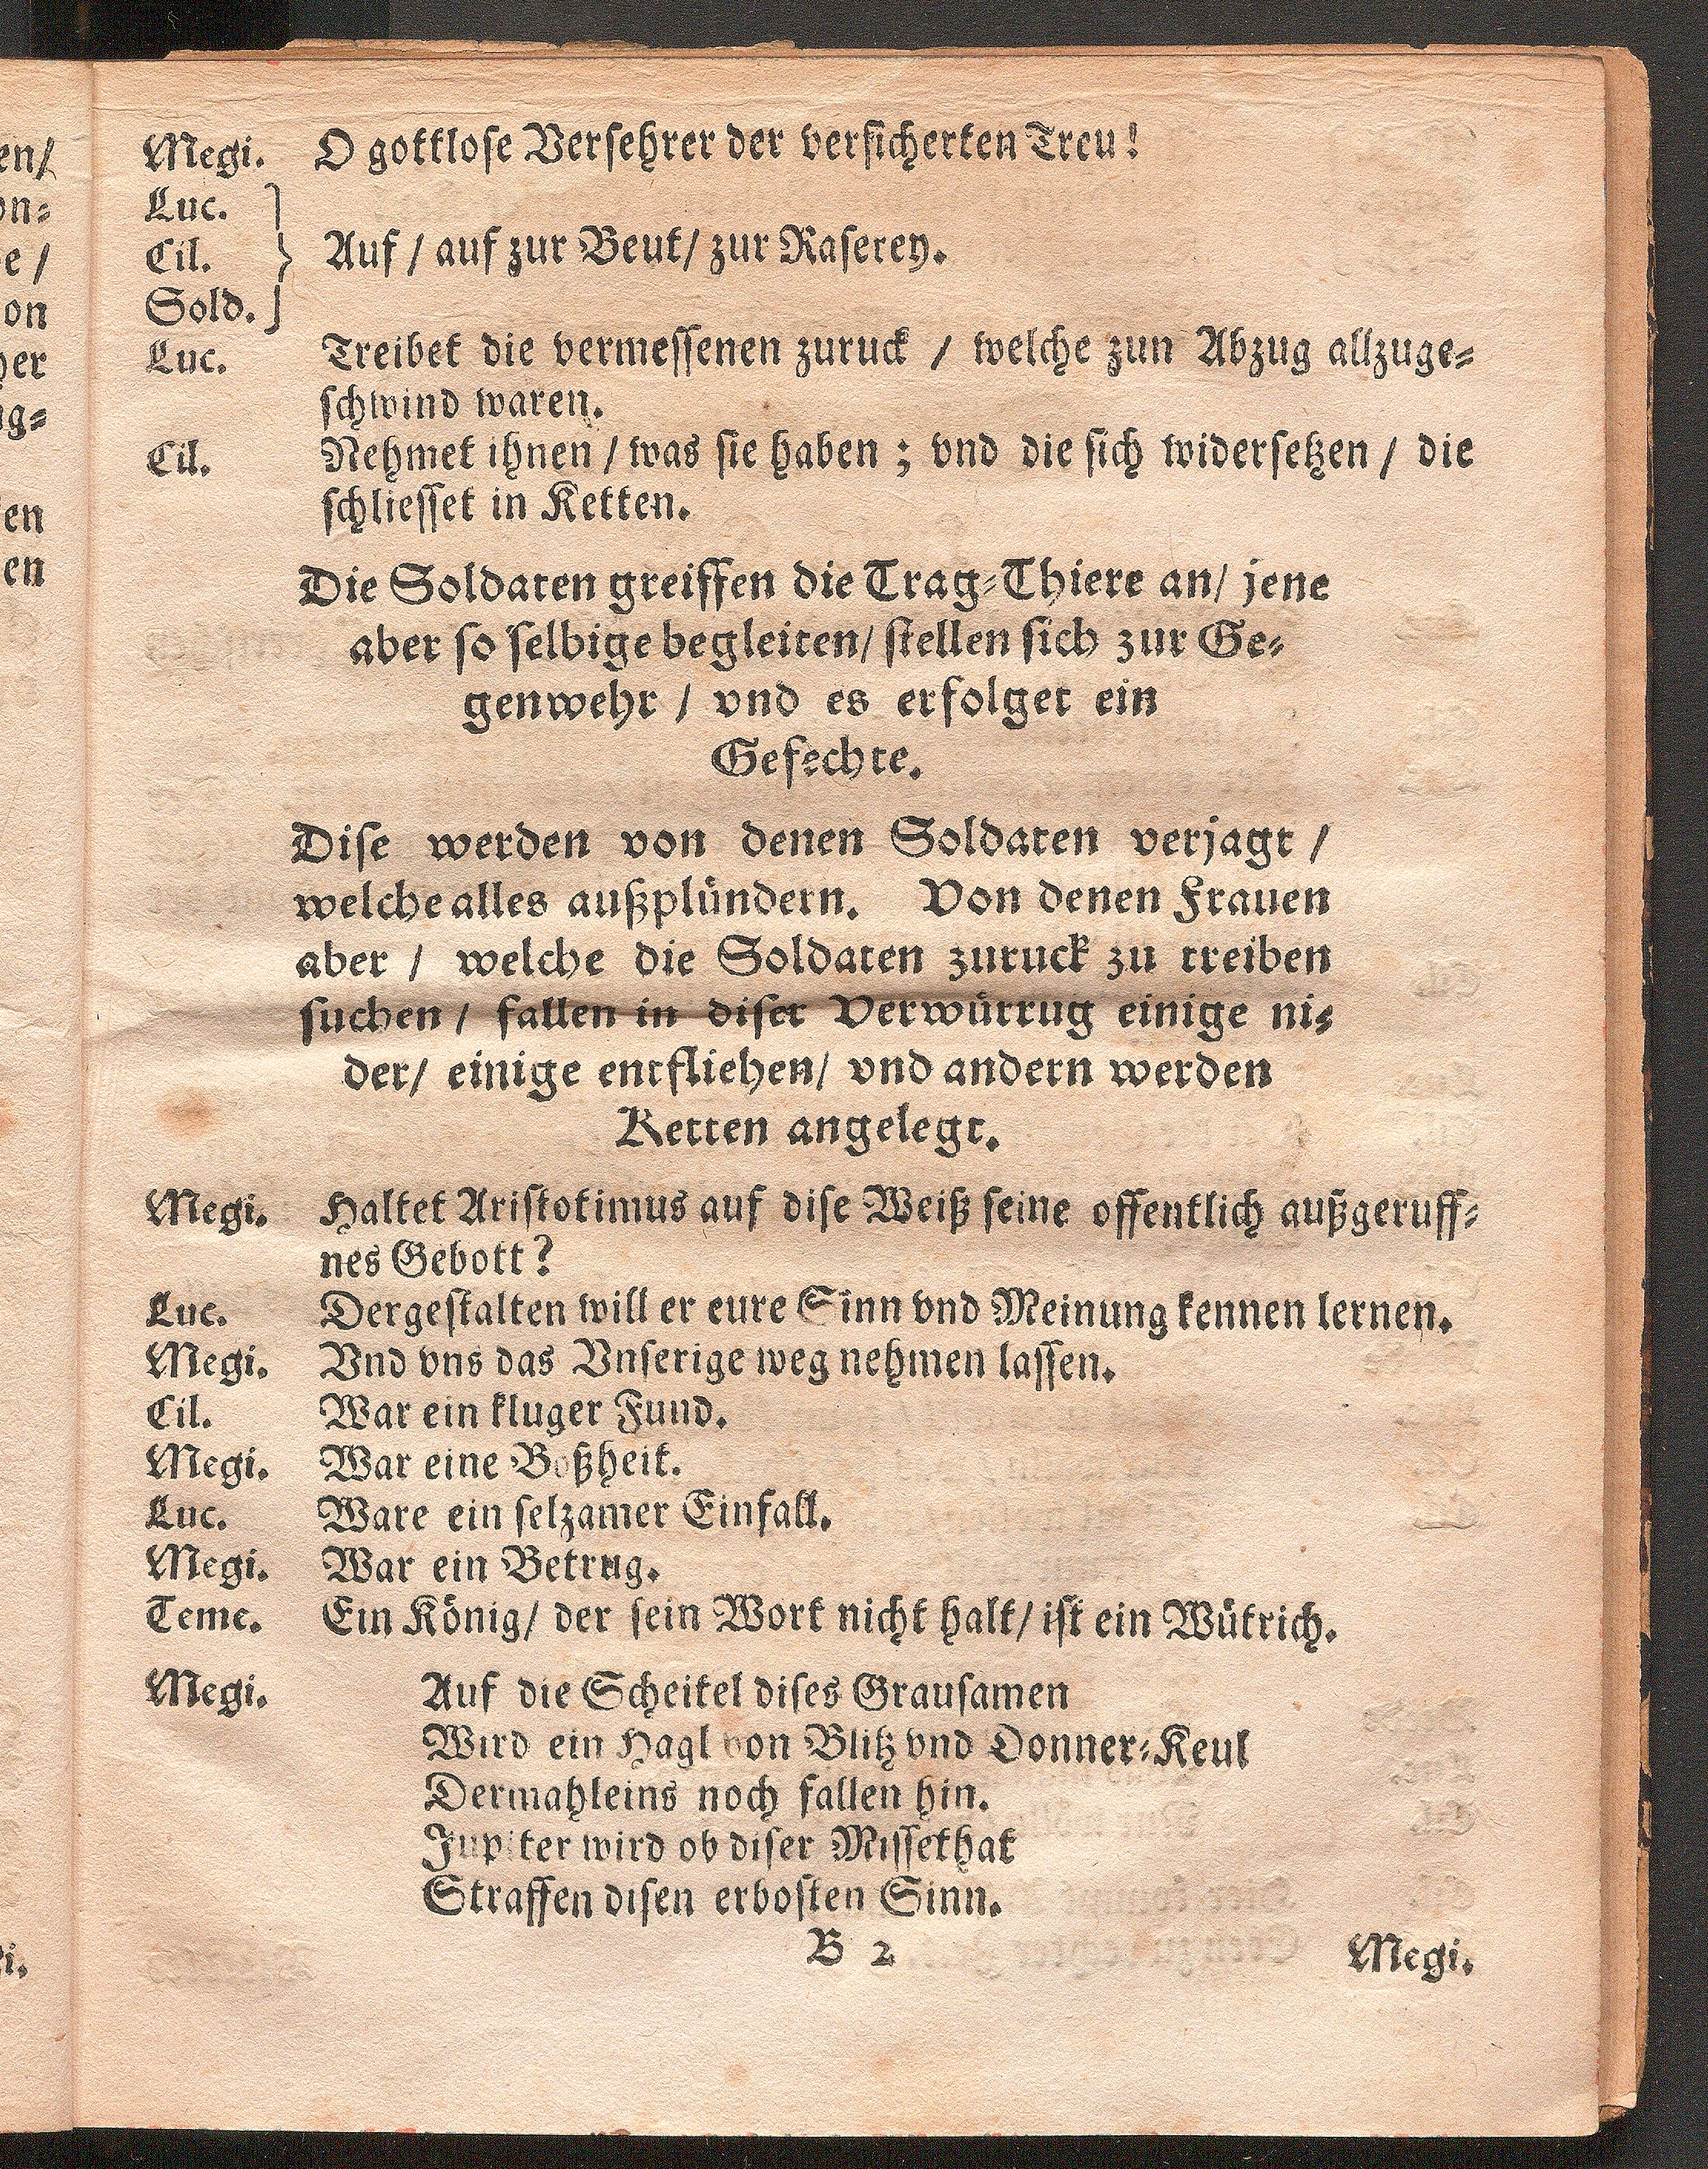 Megi. O gottlose Versehrer der versicherten Treu!
Luc.
Cil. Auf / auf zur Beut / zur Raserey.
Sold.
Luc. Treibet die vermessenen zuruck / welche zun Abzug allzuge=
schwind waren.
Cil. Nehmet ihnen / was sie haben ; vnd die sich widersetzen / die
schliesset in Ketten.
Die Soldaten greiffen die Trag=Thiere an / jene
aber so selbige begleiten / stellen sich zur Ge=
genwehr / vnd es erfolget ein
Gefechte.
Dise werden von denen Soldaten verjagt /
welche alles außplündern. Von denen Frauen
aber / welche die Soldaten zuruck zu treiben
suchen / fallen in diser Verwürrug einige ni=
der / einige entfliehen / vnd andern werden
Ketten angelegt.
Megi. Haltet Aristotimus auf dise Weiß seine offentlich außgeruff=
nes Gebott?
Luc. Dergestalten will er eure Sinn vnd Meinung kennen lernen.
Megi. Vnd vns das Vnserige weg nehmen lassen.
Cil. War ein kluger Fund.
Megi. War eine Boßheit.
Luc. Ware ein selzamer Einfall.
Megi. War ein Betrug.
Teme. Ein König / der sein Wort nicht halt / ist ein Wütrich.
Megi. Auf die Scheitel dises Grausamen
Wird ein Hagl von Blitz vnd Donner=Keul
Dermahleins noch fallen hin.
Jupiter wird ob diser Missethat
Straffen disen erbosten Sinn.
B 2 Megi.